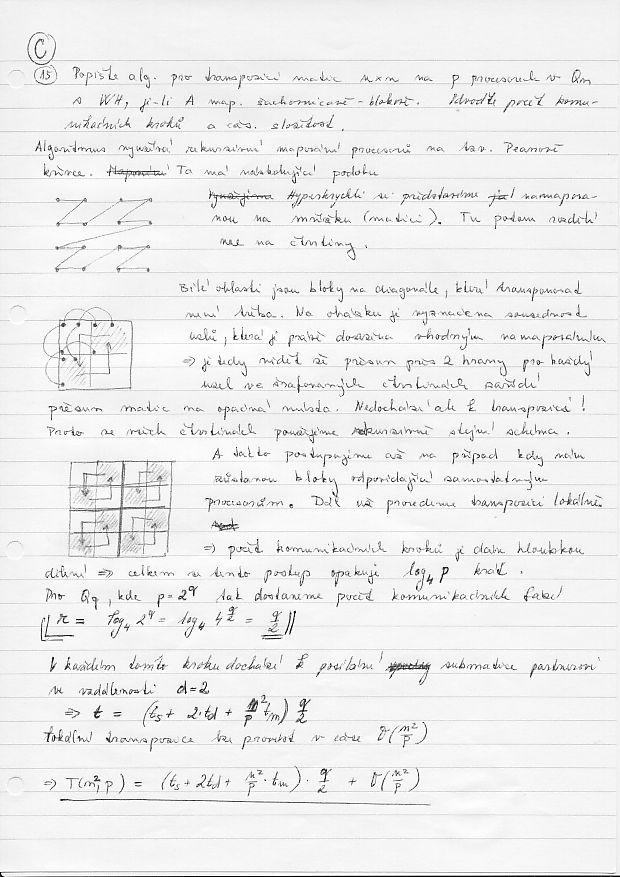 C
15 Popište alg. pro transpozici matic n×n na p procesorech v Qm
s WH, je-li A map. šachovnicově - blokově. Odvoďte počet komu-
nikačních kroků a čas. složitost.
Algoritmus využívá rekurzivní mapování procesorů na tzv. Peanově
křivce. Ta má následující podobu
Hyperkrychli si představíme namapova-
nou na mřížku (matici). Tu potom rozdělí
me na čtvrtiny.
Bílé oblasti jsou bloky na diagonále, které transponovat
není třeba. Na obrázku je vyznačena sousednost
uzlů, která je právě dosažena vhodným namapováním
⇒ je tedy vidět že přesun přes 2 hrany pro každý
uzel ve šrafovaných čtvrtinách zařídí
přesun matic na opačná místa. Nedochází ale k transpozici!
Proto ve všech čtvrtinách použijeme rekurzivně stejné schéma.
A takto postupujeme až na případ kdy nám
zůstanou bloky odpovídající samostatným
procesorům. Dál už provedeme transpozici lokálně
⇒ počet komunikačních kroků je dán hloubkou
dělení ⇒ celkem se tento postup opakuje log₄ p krát.
Pro Qq, kde p = 2^q tak dostaneme počet komunikačních fází
r = log₄ 2^q = log₄ 4^(q/2) = q/2
V každém tomto kroku dochází k posílání submatice partnerovi
ve vzdálenosti d=2
⇒ t = (ts + 2·td + n²/p tm) q/2
Lokální transpozice lze provést v čase O(n²/p)
⇒ T(n², p) = (ts + 2td + n²/p · tm) · q/2 + O(n²/p)